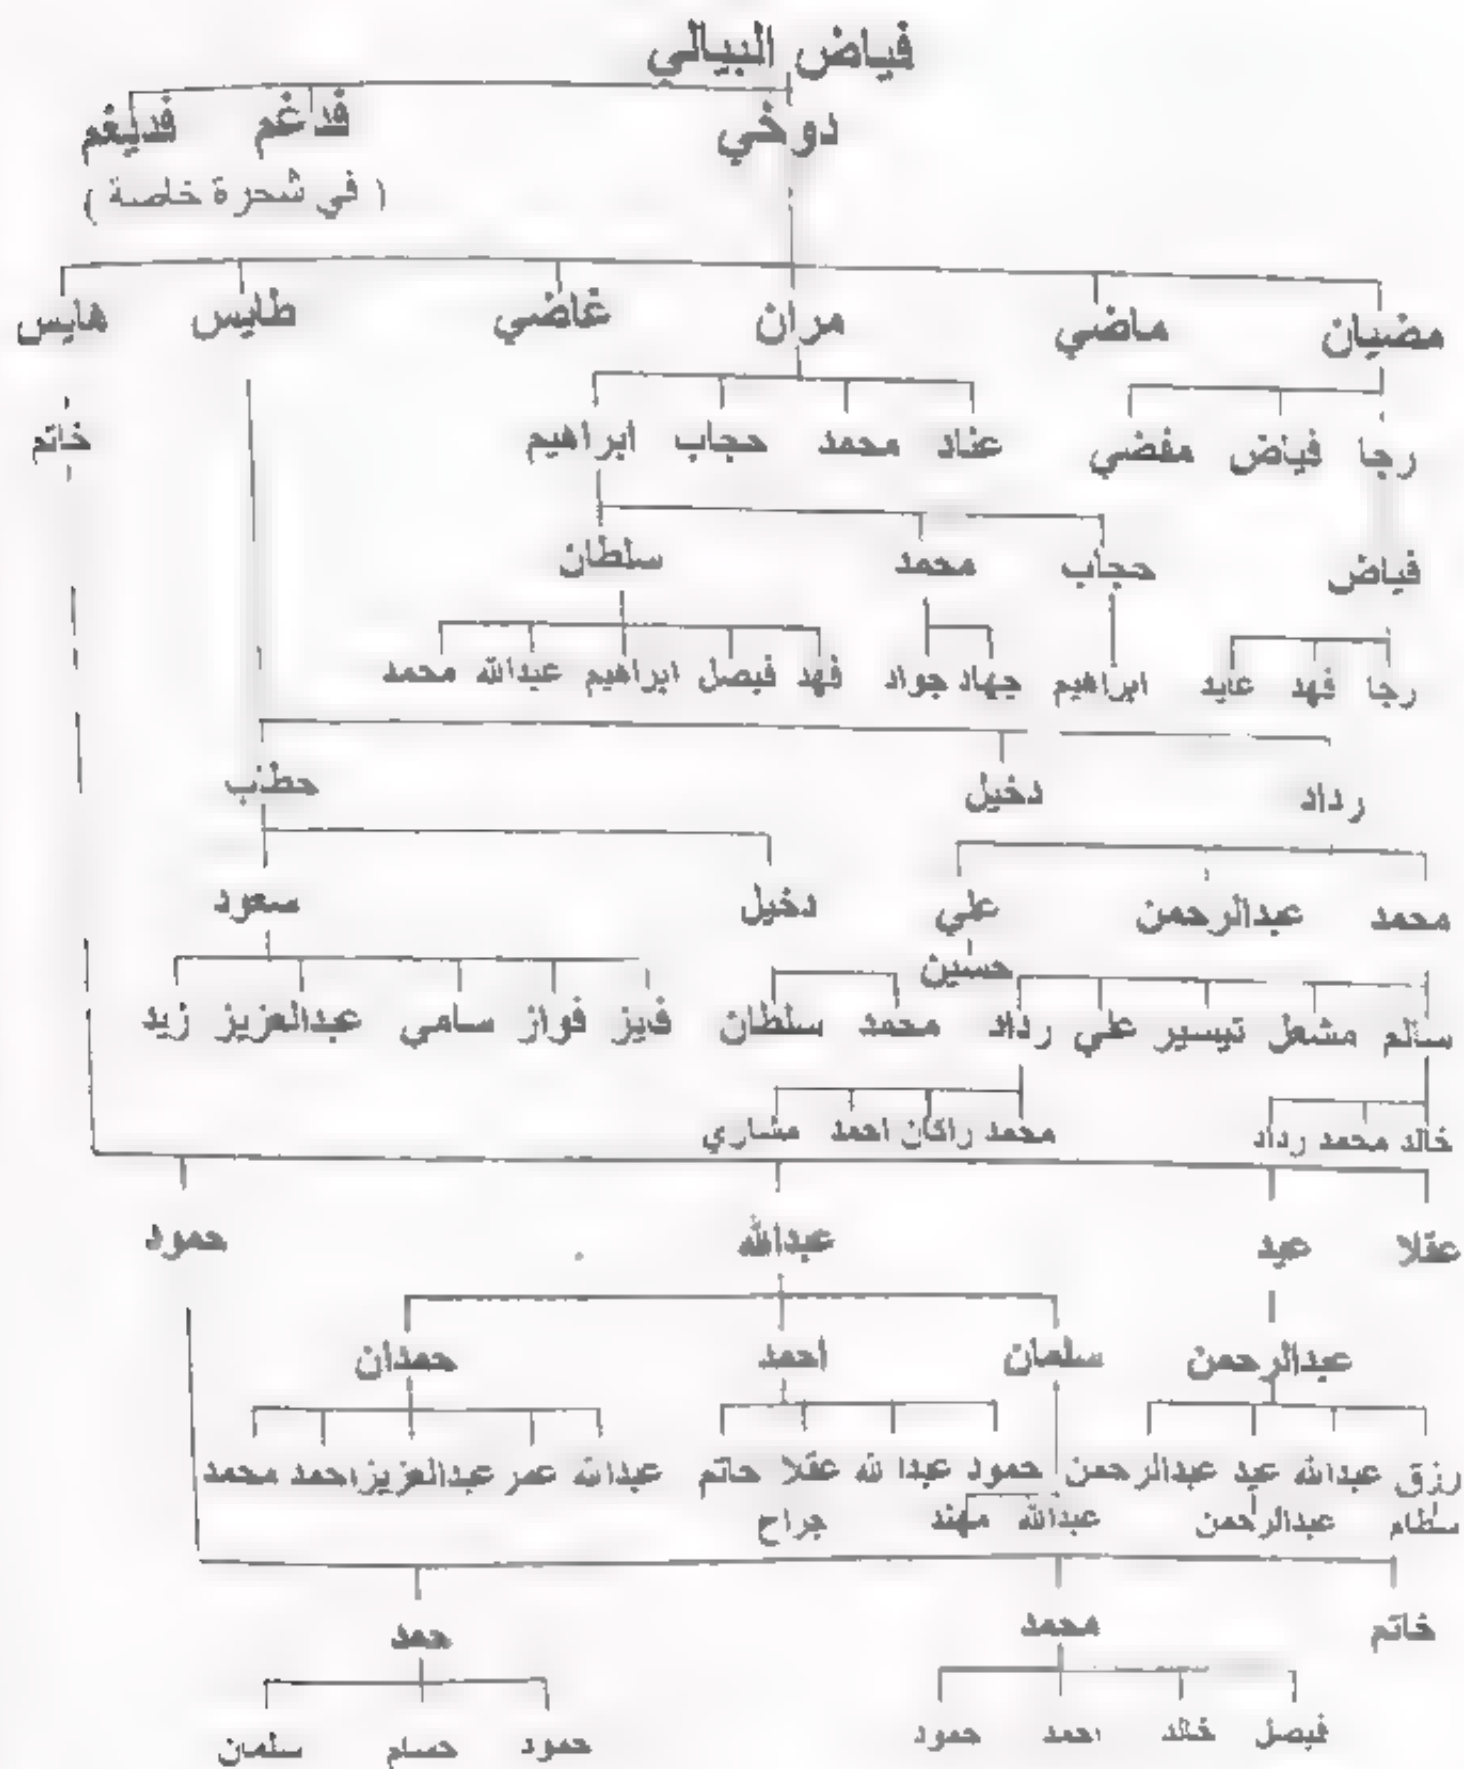 فياض البيالي
دوخي فداغم فديغم
( في شحرة خاصة )
مضيان ماضي مران غاضي طايس هايس
رجا فياض مفضي عناد محمد حجاب ابراهيم خاتم
فياض حجاب محمد سلطان
رجا فهد عايد ابراهيم جهاد جواد فهد فيصل ابراهيم عبدالله محمد
رداد دخيل حطاب
محمد عبدالرحمن علي دخيل سعود
حسين
سالم مشعل تيسير علي رداد محمد سلطان فايز فواز سامي عبدالعزيز زيد
خالد محمد رداد محمد راكان احمد مشاري
عقلا عيد عبدالله حمود
عبدالرحمن سلمان احمد حمدان
رزق عبدالله عيد عبدالرحمن حمود عبدا لله عقلا حاتم عبدالله عمر عبدالعزيز احمد محمد
سطام عبدالرحمن عبدالله مهند جراح
خاتم محمد حمد
فيصل خالد احمد حمود حمود حسام سلمان